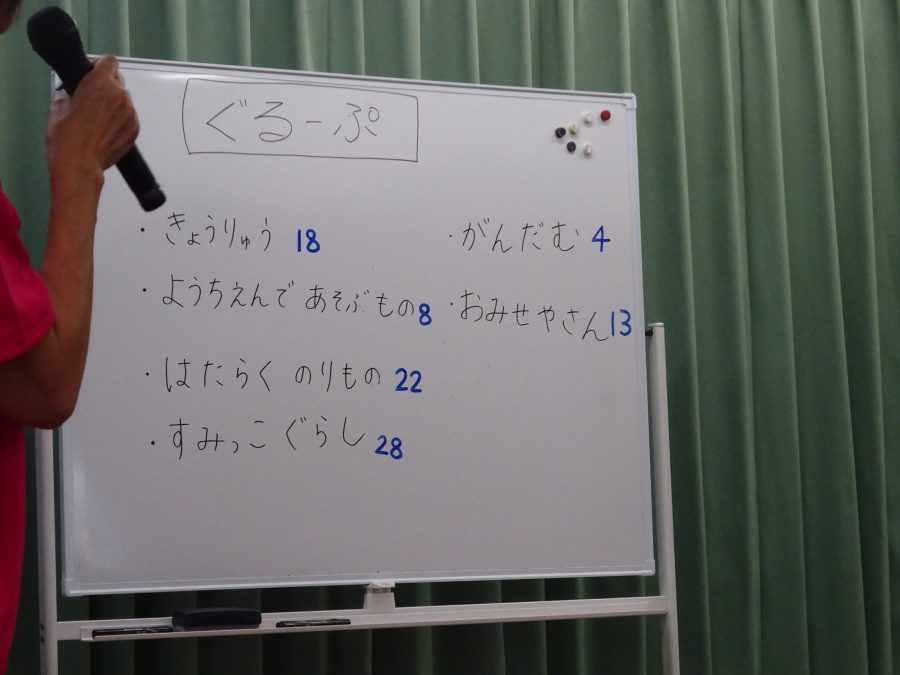 ぐるーぷ
・きょうりゅう 18
・ようちえんで あそぶもの 8
・はたらく のりもの 22
・すみっこ ぐらし 28
・がんだむ 4
・おみせやさん 13